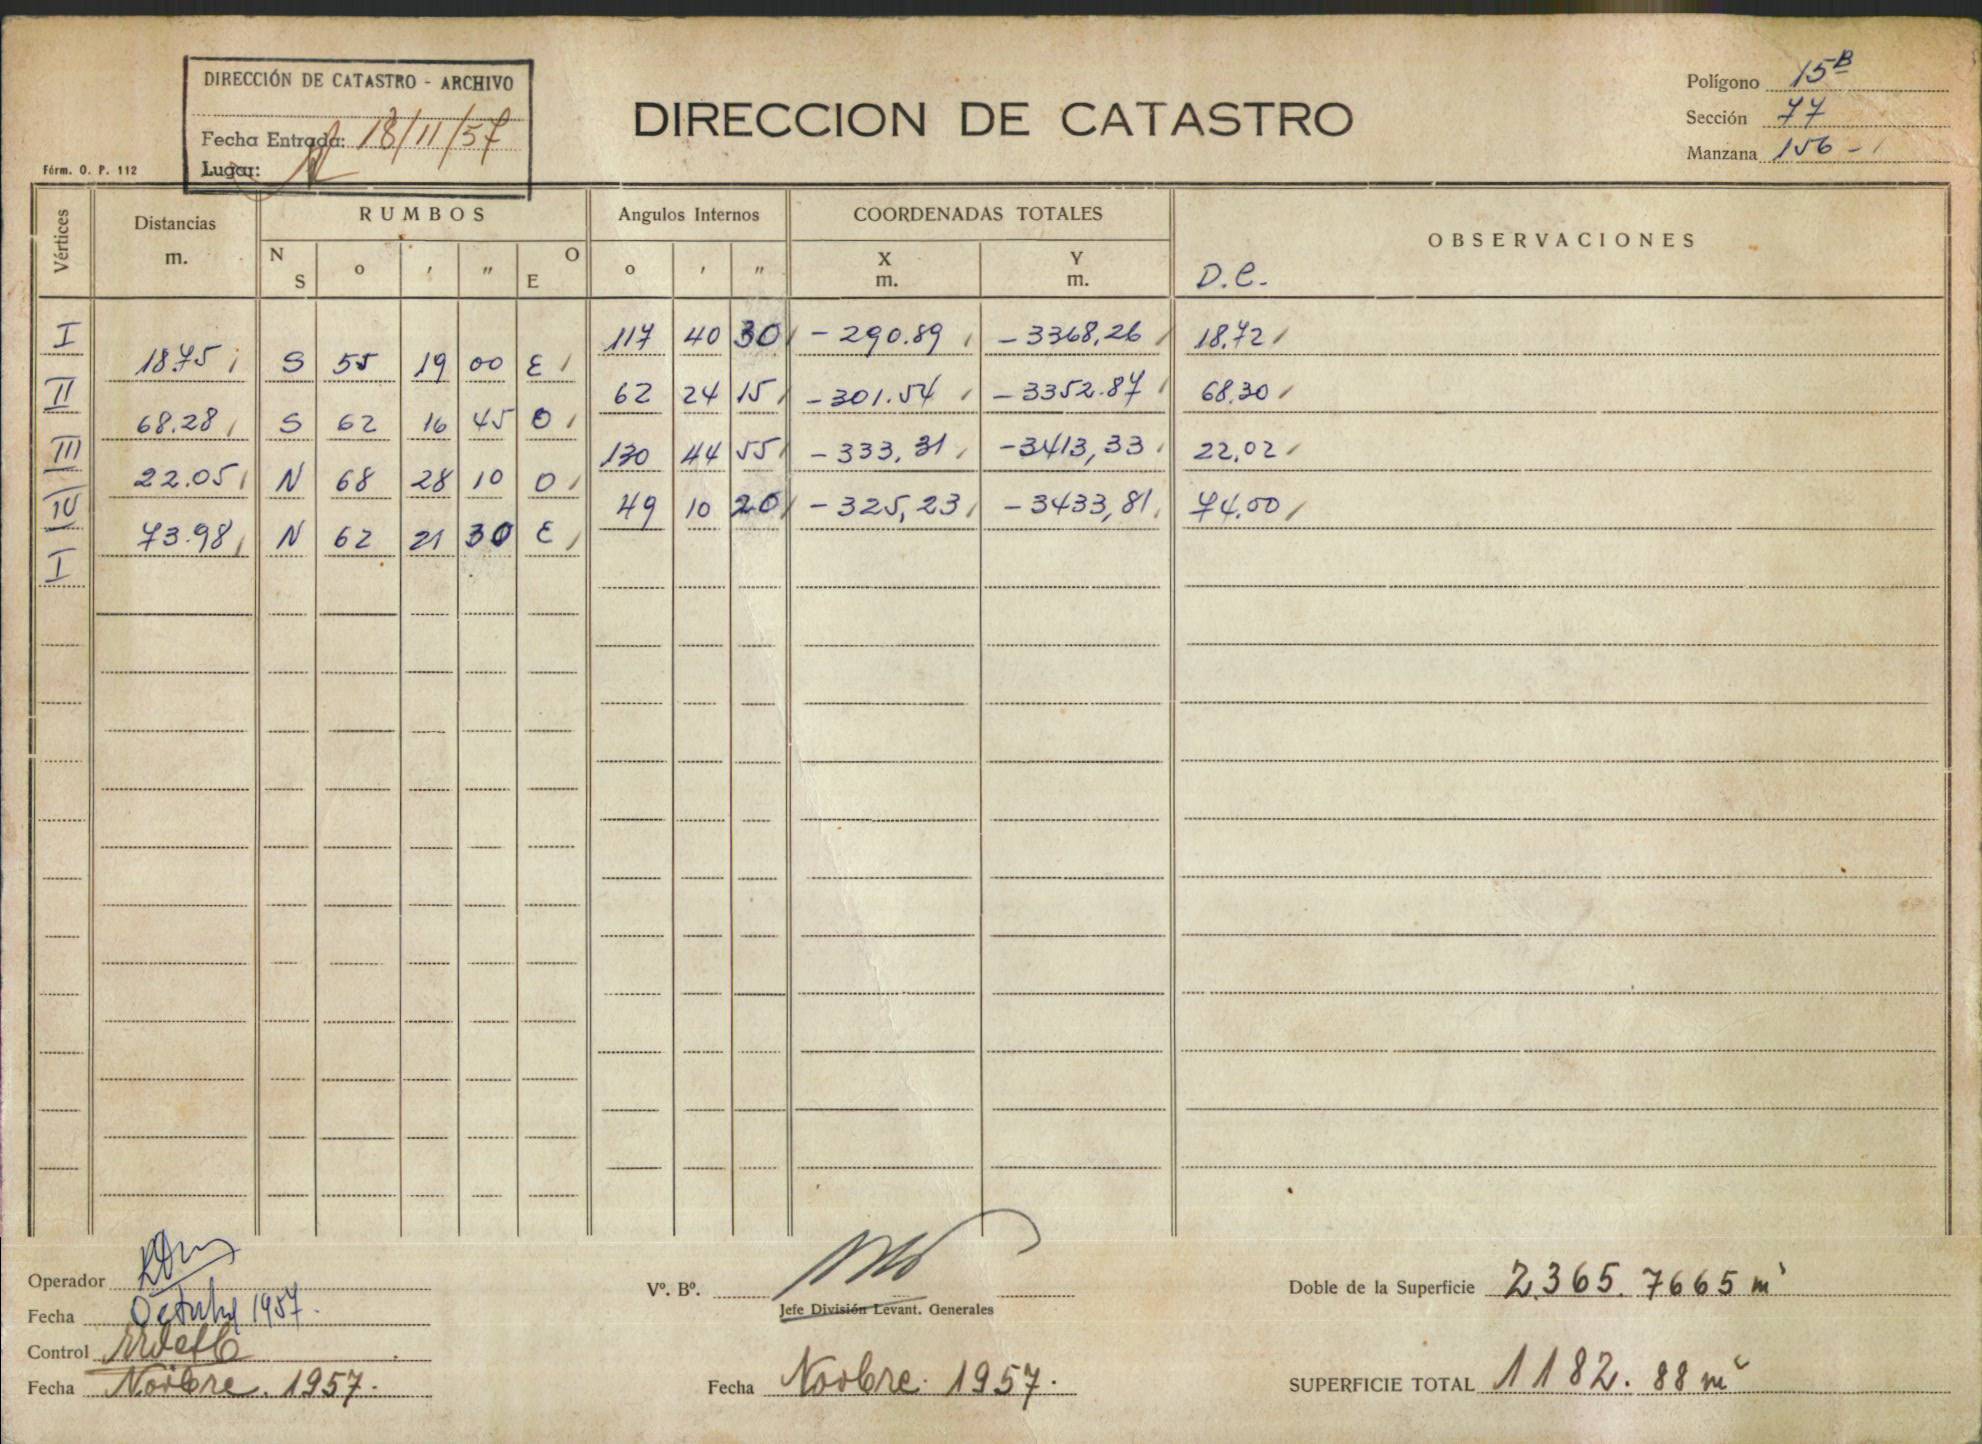 DIRECCIÓN DE CATASTRO - ARCHIVO
Fecha Entrada: 18/11/57
Lugar:
Fórm. O. P. 112
DIRECCION DE CATASTRO
Polígono 15B
Sección 77
Manzana 156-1
Vértices Distancias m. RUMBOS Angulos Internos COORDENADAS TOTALES OBSERVACIONES
N S ° ' " O E ° ' " X m. Y m. D.C.
I 117 40 30 -290.89 -3368,26 18.72
18.75 S 55 19 00 E
II 62 24 15 -301.54 -3352.87 68.30
68.28 S 62 16 45 O
III 130 44 55 -333,31 -3413,33 22.02
22.05 N 68 28 10 O
IV 49 10 20 -325,23 -3433,81 74.00
73.98 N 62 21 30 E
I
Operador
Fecha Octubre 1957.
Control
Fecha Novbre. 1957.
Vº. Bº.
Jefe División Levant. Generales
Fecha Novbre. 1957.
Doble de la Superficie 2365.7665 m²
SUPERFICIE TOTAL 1182.88 m²